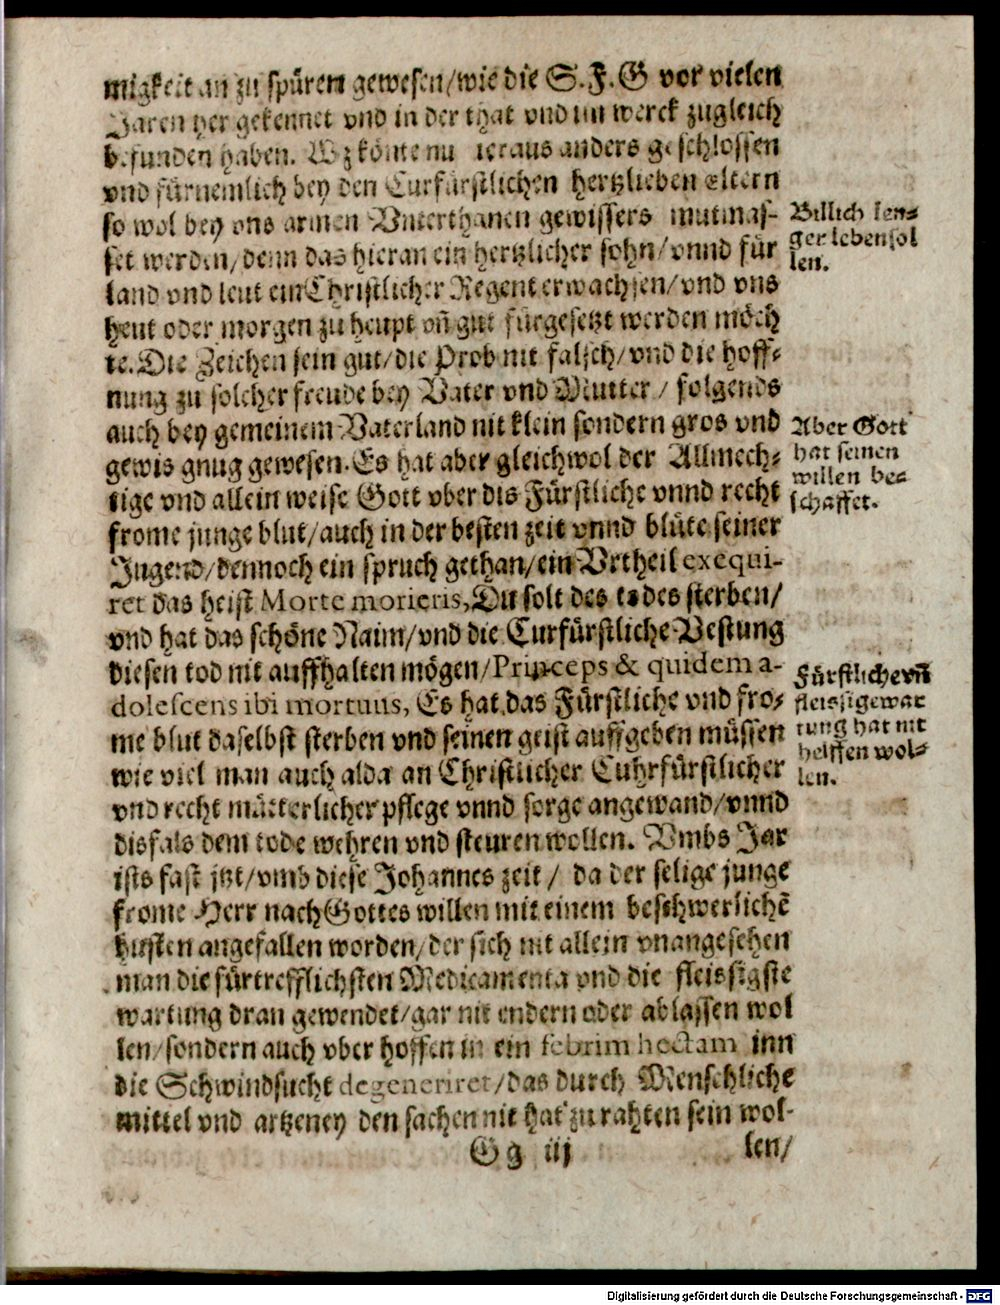 migkeit an zu spüren gewesen/wie die S.F.G vor vielen
Jaren her gekennet vnd in der that vnd im werck zugleich
befunden haben. Wz könte nu hieraus anders geschlossen
vnd fürnemlich bey den Curfürstlichen hertzlieben eltern
so wol bey vns armen Vnterthanen gewissers mutmas-
set werden/denn das hieran ein hertzlicher sohn/vnnd für
land vnd leut ein Christlicher Regent erwachsen/vnd vns
heut oder morgen zu heupt vñ gut fürgesetzt werden möch
te. Die Zeichen sein gut/die Prob nit falsch/vnd die hoff-
nung zu solcher freude bey Vater vnd Mutter / folgends
auch bey gemeinem Vaterland nit klein sondern gros vnd
gewis gnug gewesen. Es hat aber gleichwol der Allmech-
tige vnd allein weise Gott vber dis Fürstliche vnnd recht
frome junge blut/auch in der besten zeit vnnd blüte seiner
Jugend/dennoch ein spruch gethan/ein Vrtheil exequi-
ret das heist Morte morieris, Du solt des todes sterben/
vnd hat das schöne Naim/vnd die Curfürstliche Vestung
diesen tod nit auffhalten mögen/Princeps & quidem a-
dolescens ibi mortuus, Es hat das Fürstliche vnd fro-
me blut daselbst sterben vnd seinen geist auffgeben müssen
wie viel man auch alda an Christlicher Cuhrfürstlicher
vnd recht mütterlicher pflege vnnd sorge angewand/vnnd
disfals dem tode wehren vnd steuren wollen. Vmbs Jar
ists fast jtzt/vmb diese Johannes zeit / da der selige junge
frome Herr nach Gottes willen mit einem beschwerlichẽ
husten angefallen worden/der sich nit allein vnangesehen
man die fürtrefflichsten Medicamenta vnd die fleissigste
wartung dran gewendet/gar nit endern oder ablassen wol
len/sondern auch vber hoffen in ein febrim hectam inn
die Schwindsucht degeneriret/das durch Menschliche
mittel vnd artzeney den sachen nit hat zu rahten sein wol-
Gg iij
len/
Billich len-
ger leben sol
len.
Aber Gott
hat seinen
willen be-
schaffet.
Fürstliche vñ
fleissige war
tung hat nit
helffen wol-
len.
Digitalisierung gefördert durch die Deutsche Forschungsgemeinschaft - DFG